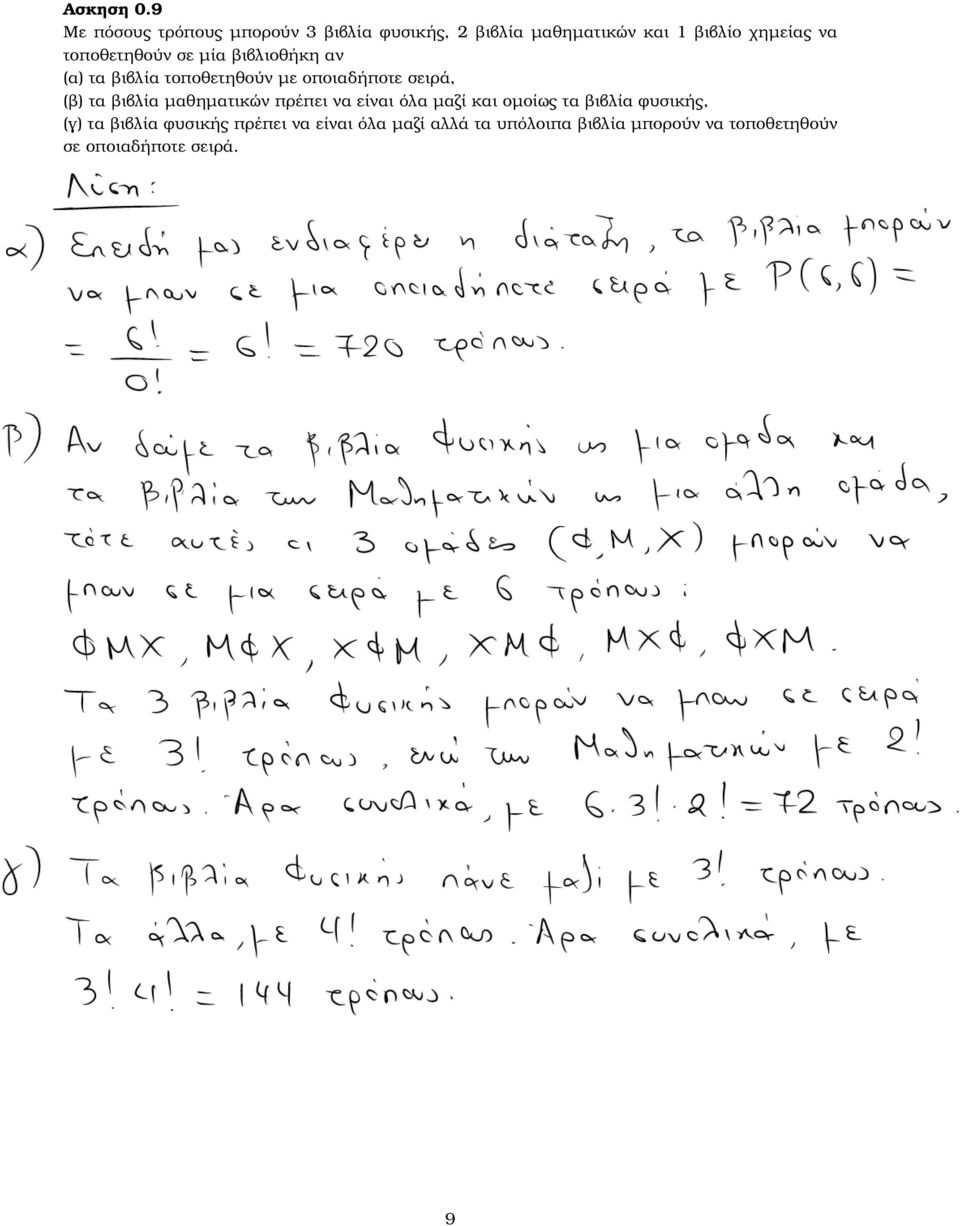 Ασκηση 0.9
Με πόσους τρόπους μπορούν 3 βιβλία φυσικής, 2 βιβλία μαθηματικών και 1 βιβλίο χημείας να
τοποθετηθούν σε μία βιβλιοθήκη αν
(α) τα βιβλία τοποθετηθούν με οποιαδήποτε σειρά,
(β) τα βιβλία μαθηματικών πρέπει να είναι όλα μαζί και ομοίως τα βιβλία φυσικής,
(γ) τα βιβλία φυσικής πρέπει να είναι όλα μαζί αλλά τα υπόλοιπα βιβλία μπορούν να τοποθετηθούν
σε οποιαδήποτε σειρά.
Λύση:
α) Επειδή μας ενδιαφέρει η διάταξη, τα βιβλία μπορούν
να μπουν σε μια οποιαδήποτε σειρά με P(6,6) =
= 6!/0! = 6! = 720 τρόπους.
β) Αν δούμε τα βιβλία Φυσικής ως μια ομάδα και
τα βιβλία των Μαθηματικών ως μια άλλη ομάδα,
τότε αυτές οι 3 ομάδες (Φ,Μ,Χ) μπορούν να
μπουν σε μια σειρά με 6 τρόπους:
ΦΜΧ, ΜΦΧ, ΧΦΜ, ΧΜΦ, ΜΧΦ, ΦΧΜ.
Τα 3 βιβλία Φυσικής μπορούν να μπουν σε σειρά
με 3! τρόπους, ενώ των Μαθηματικών με 2!
τρόπους. Άρα συνολικά, με 6·3!·2! = 72 τρόπους.
γ) Τα βιβλία Φυσικής πάνε μαζί με 3! τρόπους.
Τα άλλα, με 4! τρόπους. Άρα συνολικά, με
3! 4! = 144 τρόπους.
9